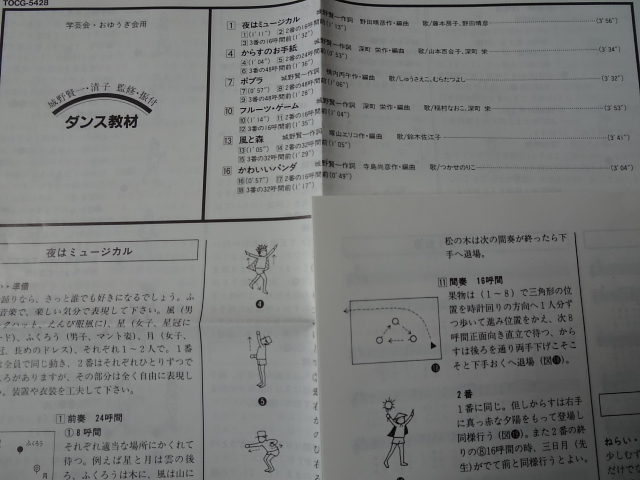 TOCG-5428
学芸会・おゆうぎ会用
城野賢一・清子 監修・振付
ダンス教材
1 夜はミュージカル 城野賢一作詞 野田晴彦作・編曲 歌/藤本房子、野田晴彦 (3'56")
2(1'11") 2番の16呼間前
3 3番の16呼間前(1'32")
4 からすのお手紙 城野賢一作詞 深町 栄作・編曲 歌/山本百合子、深町 栄 (3'34")
4(1'04") 5 2番の24呼間前
6 3番の48呼間前(1'36")
7 ポプラ 城野賢一作詞 横内丙午作・編曲 歌/しゅうさえこ、むらたつよし (3'32")
7(0'57") 8 2番の48呼間前
9 3番の48呼間前(1'28")
10 フルーツ・ゲーム 城野賢一作詞 深町 栄作・編曲 歌/稲村なおこ、深町 栄 (3'53")
10(1'14") 11 2番の16呼間前
12 3番の16呼間前(1'35")
13 風と森 城野賢一作詞 蔭山エリコ作・編曲 歌/鈴木佐江子 (3'41")
13(1'05") 14 2番の32呼間前
15 3番の32呼間前(1'29")
16 かわいいパンダ 城野賢一作詞 寺島尚彦作・編曲 歌/つかせのりこ (3'04")
16(0'57") 17 2番の16呼間前(0'49")
18 3番の32呼間前(1'17")
夜はミュージカル
い・準備
踊りなら、きっと誰でも好きになるでしょう。ふ
音楽で、楽しい気分で表現して下さい。風(男
クハット、えんび服風に)、星(女子、星冠に
ード)、ふくろう(男子、マント姿)、月(女子、
冠、長めのドレス)、それぞれ1〜2人で。1番
は全員で同じ動き、2番はそれぞれひとりずつで
ころがありますが、その部分は全く自由に表現し
い。装置や衣装を工夫して下さい。
1 前奏 24呼間
①8呼間
それぞれ適当な場所にかくれて
待つ。例えば星と月は雲の後
ろ、ふくろうは木に、風は山に
ふくろう
月
4
5
松の木は次の間奏が終ったら下
手へ退場。
11 間奏 16呼間
果物は(1〜8)で三角形の位
置を時計回りの方向へ1人分ず
つ歩いて進み位置をかえ、次8
呼間正面向き直立で待つ、から
すは後ろを通り両手下げこそこ
そと下手おくへ退場(図
2番
1番に同じ。但しからすは右手
に真っ赤な夕陽をもって登場し
同様行う(図
)。また2番の終
りの⑧16呼間の時、三日月(先
生)がでて前と同様行うとよい。
ねらい・
少しむず
だけでな